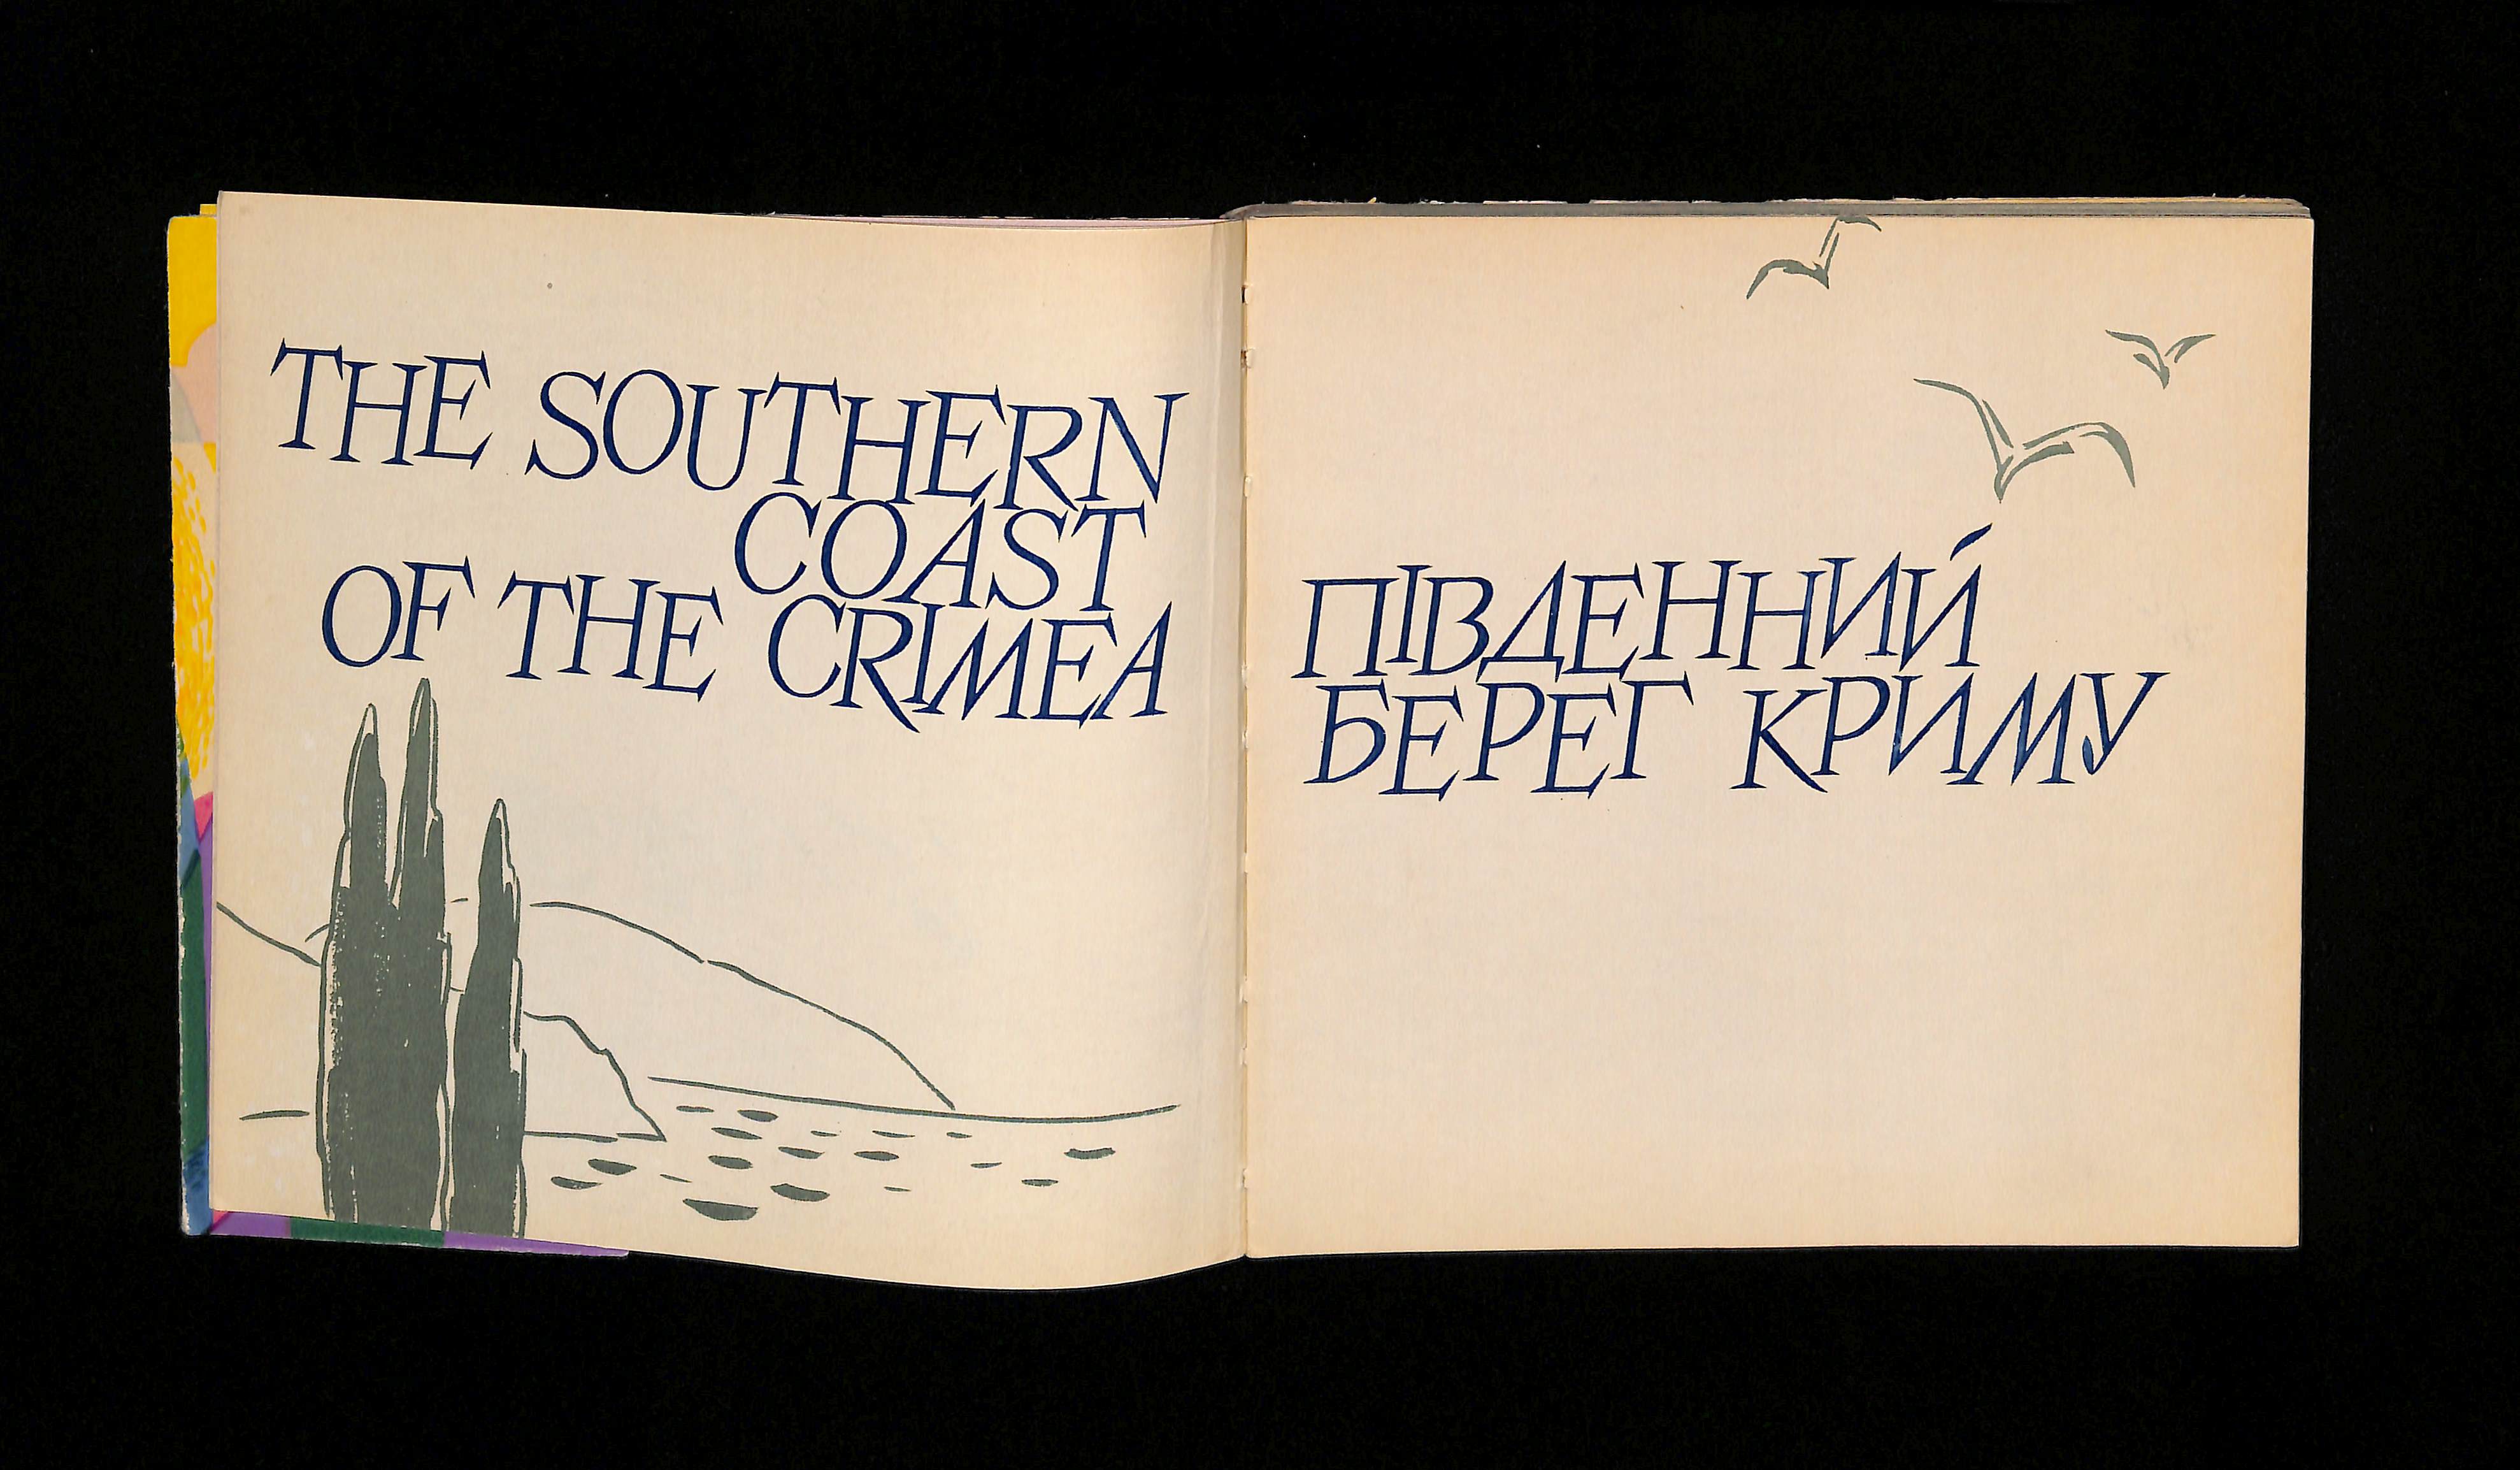 THE SOUTHERN
COAST
OF THE CRIMEA
ПІВДЕННИЙ
БЕРЕГ КРИМУ